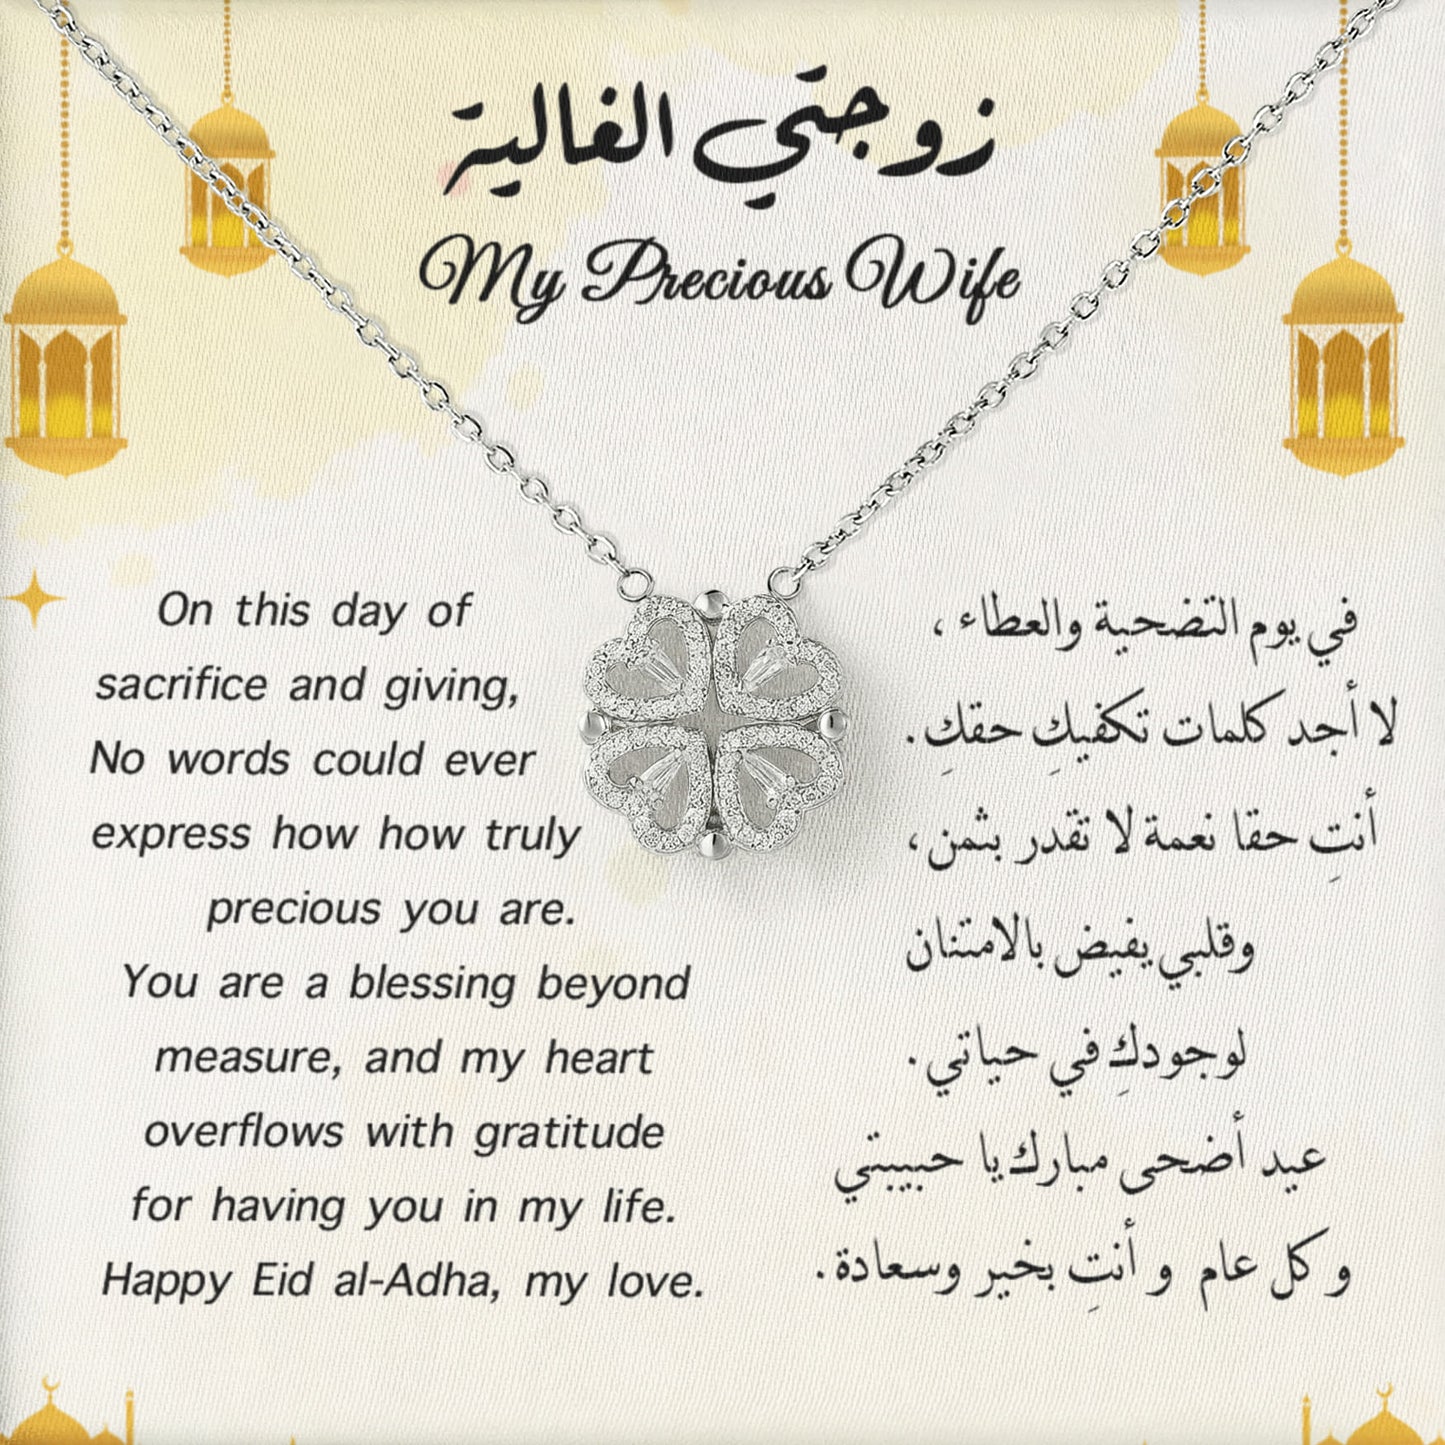 زوجتي الغالية
My Precious Wife
On this day of
sacrifice and giving,
No words could ever
express how how truly
precious you are.
You are a blessing beyond
measure, and my heart
overflows with gratitude
for having you in my life.
Happy Eid al-Adha, my love.
في يوم التضحية والعطاء ،
لا أجد كلمات تكفيكِ حقكِ.
أنتِ حقا نعمة لا تقدر بثمن،
وقلبي يفيض بالامتنان
لوجودكِ في حياتي.
عيد أضحى مبارك يا حبيبتي
و كل عام و أنتِ بخير وسعادة.